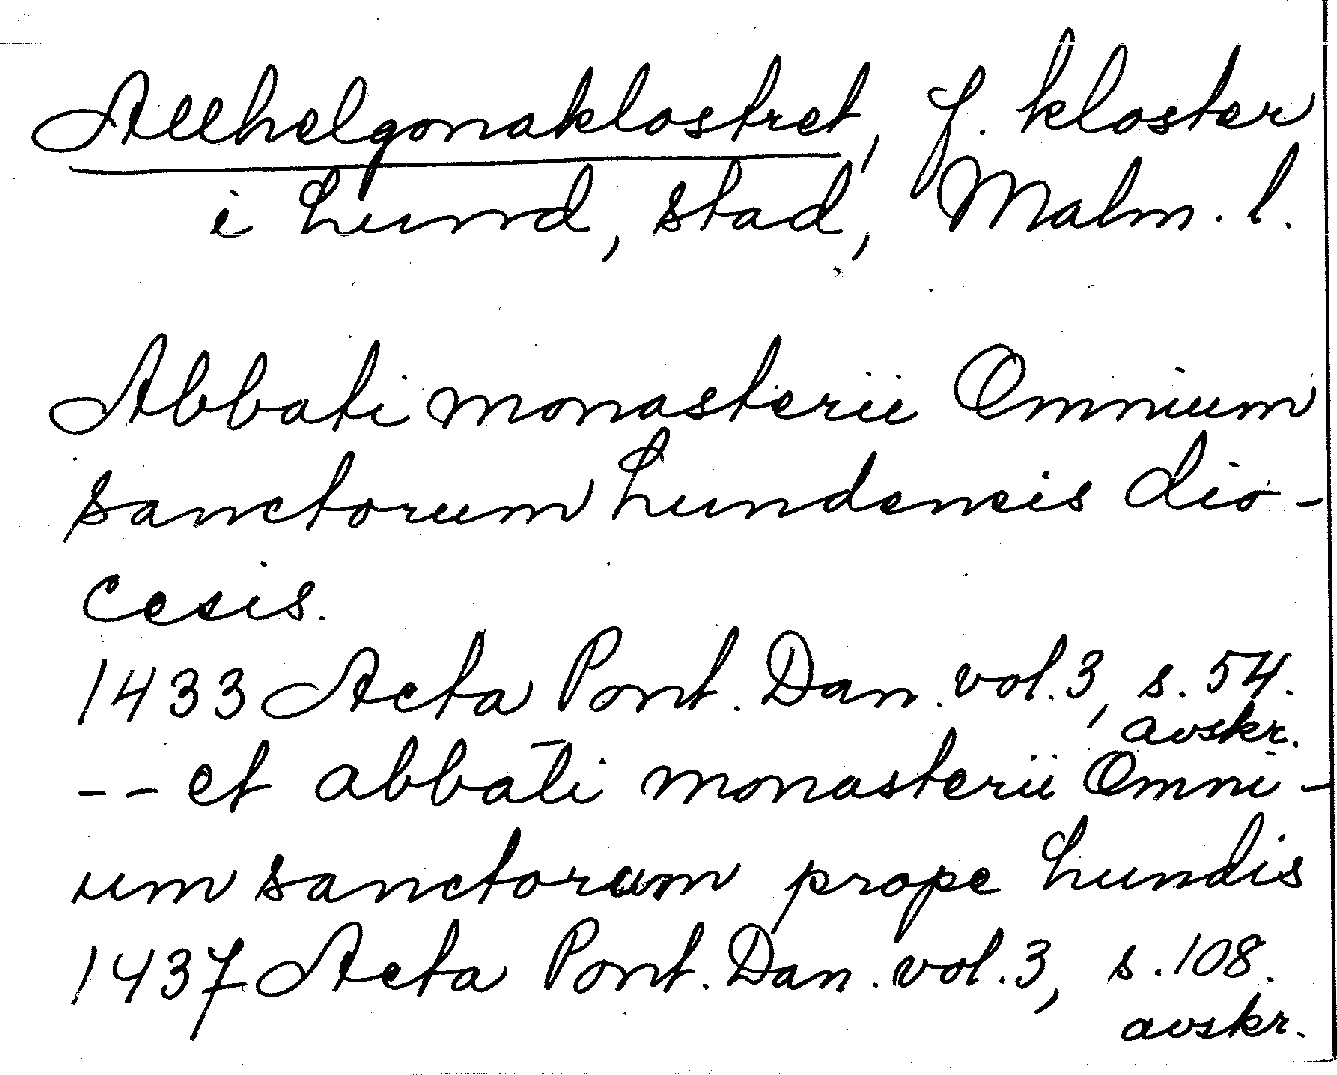 Allhelgonaklostret, f. kloster
i Lund, stad, Malm. l.
Abbati monasterii Omnium
sanctorum Lundensis dio-
cesis.
1433 Acta Pont. Dan. vol. 3, s. 54.
avskr.
-- et abbati monasterii Omni-
um sanctorum prope Lundis
1437 Acta Pont. Dan. vol. 3, s. 108.
avskr.